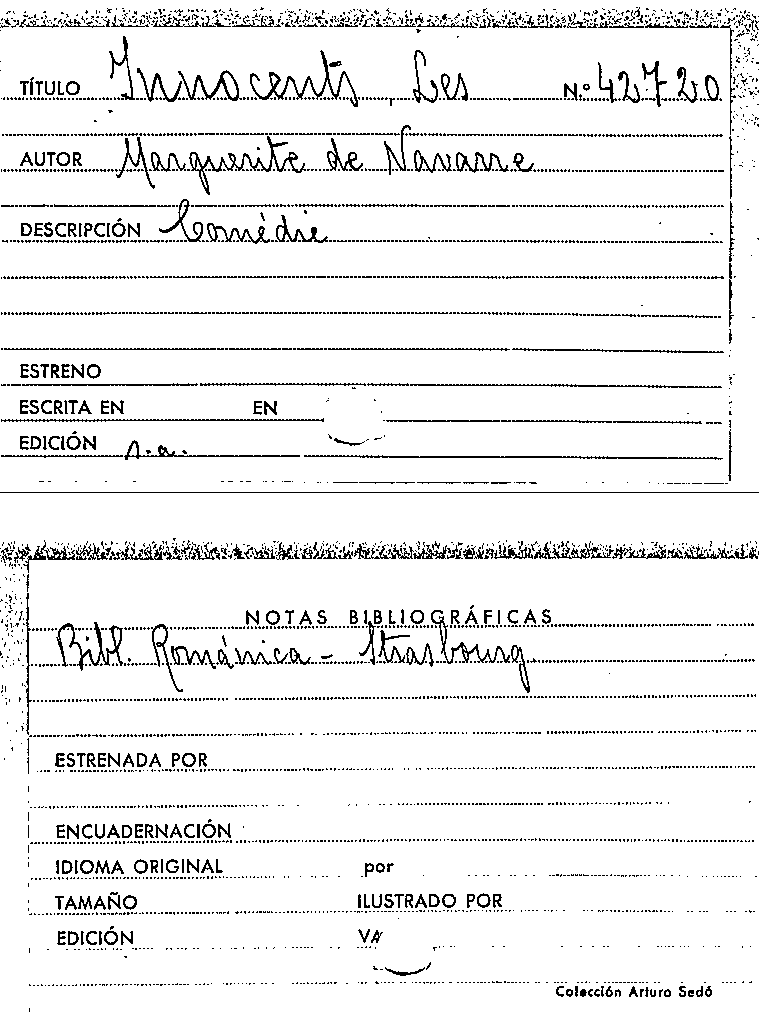 TÍTULO Innocents, Les N.º 42720
AUTOR Marguerite de Navarre
DESCRIPCIÓN Comédie
ESTRENO
ESCRITA EN EN
EDICIÓN s.a.
NOTAS BIBLIOGRÁFICAS
Bibl. Románica - Strasbourg.
ESTRENADA POR
ENCUADERNACIÓN
IDIOMA ORIGINAL por
TAMAÑO ILUSTRADO POR
EDICIÓN
Colección Arturo Sedó